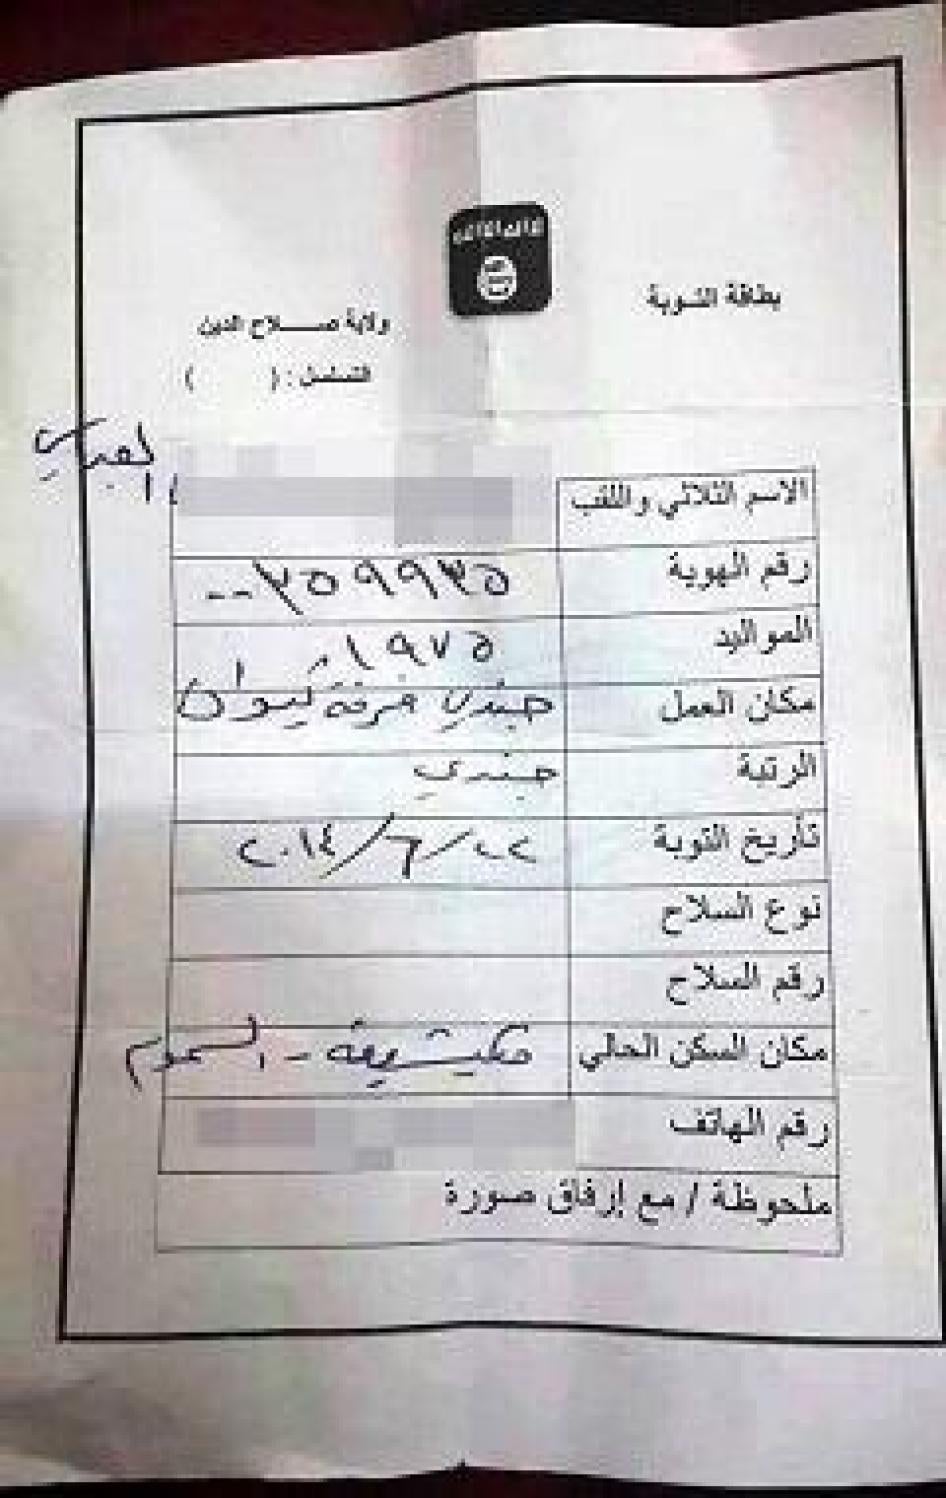 بطاقة التوبة
ولاية صـــلاح الدين
التسلسل : ( )
الاسم الثلاثي واللقب
رقم الهوية ٣٥٩٩٣٥
المواليد ١٩٧٥
مكان العمل جندي فرقة
الرتبة جندي
تأريخ التوبة ٢٠١٤/٦/٢٢
نوع السلاح
رقم السلاح
مكان السكن الحالي مكيشيفة -
رقم الهاتف
ملحوظة / مع إرفاق صورة